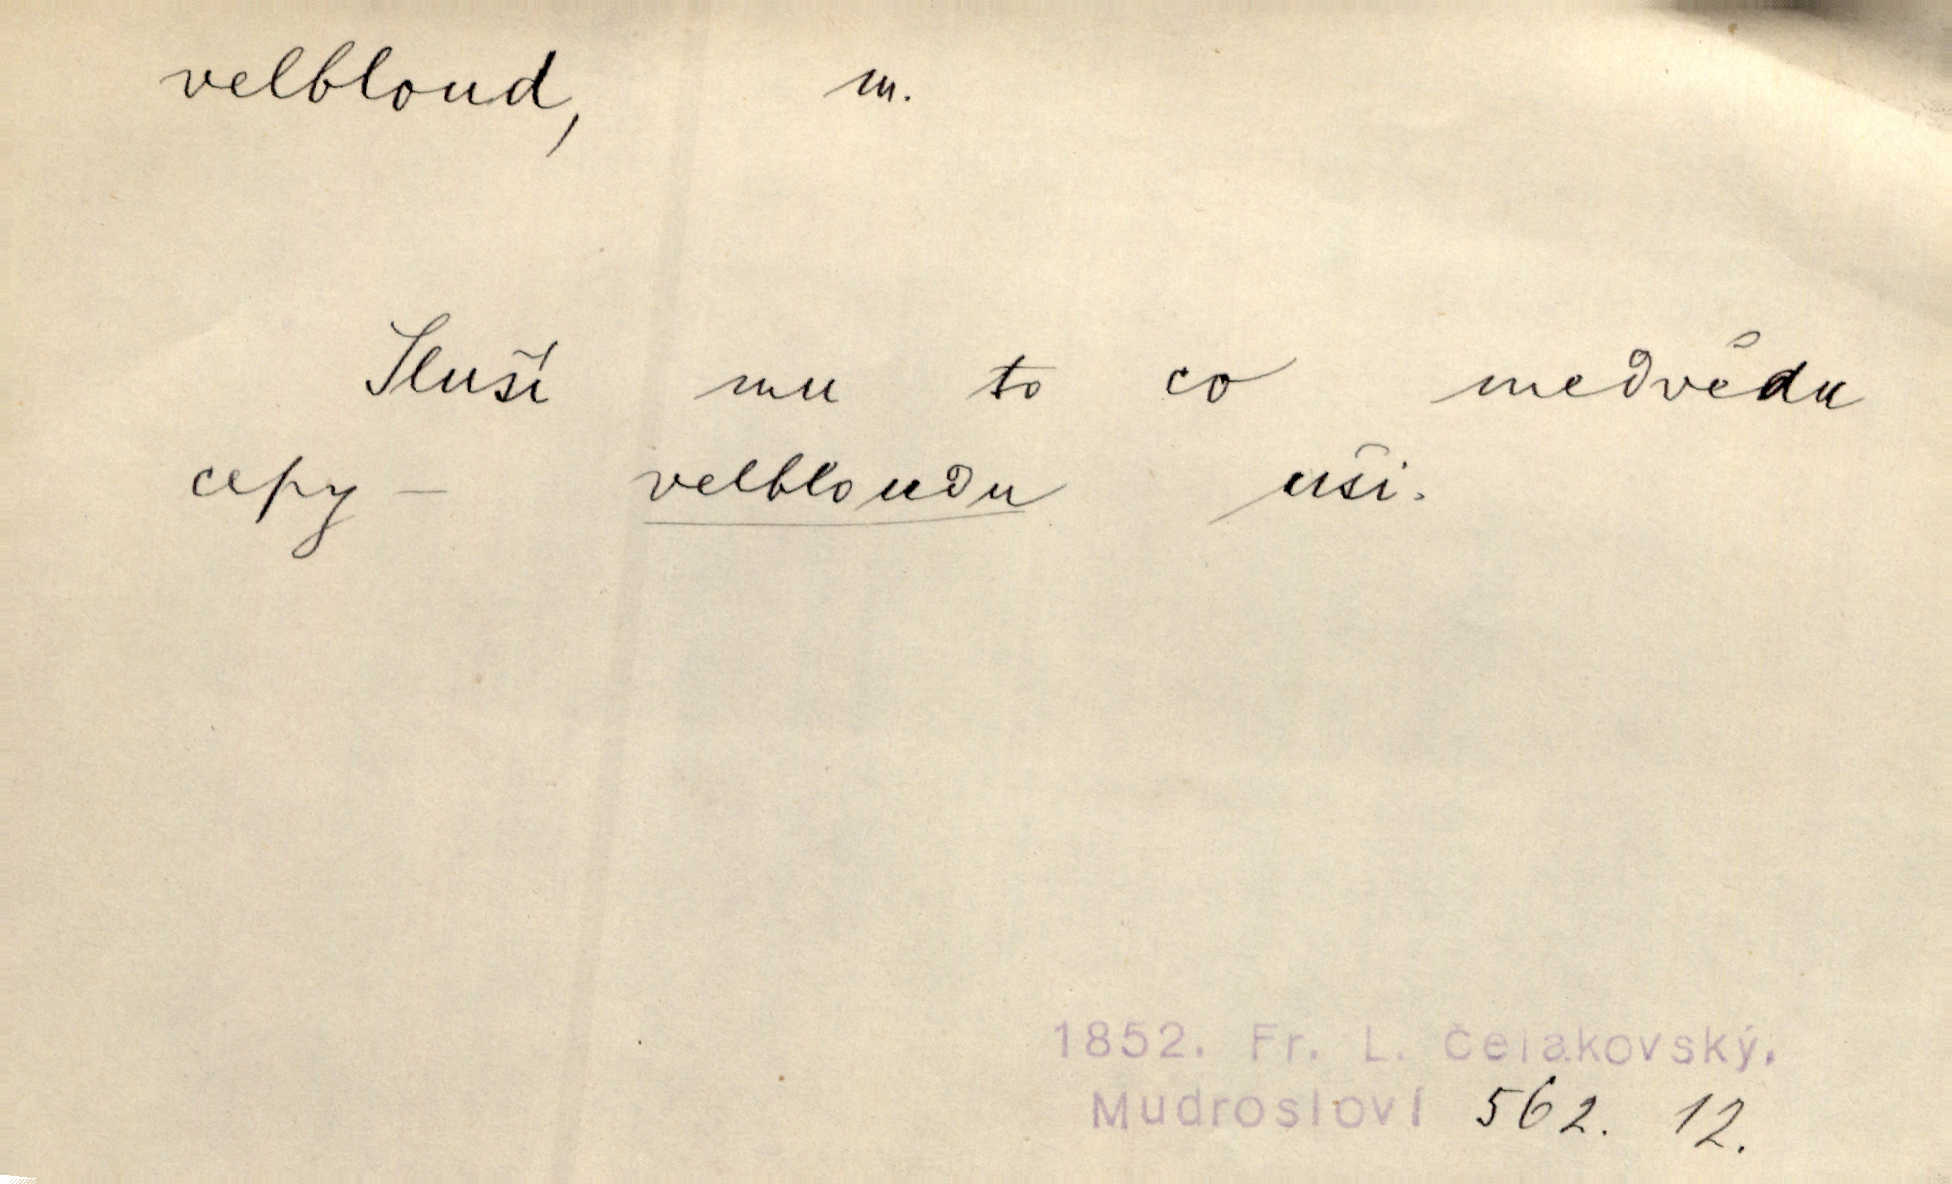 velbloud, m.
Sluší mu to co medvědu
cepy – velbloudu uši.
1852. Fr. L. Čelakovský.
Mudrosloví 562. 12.